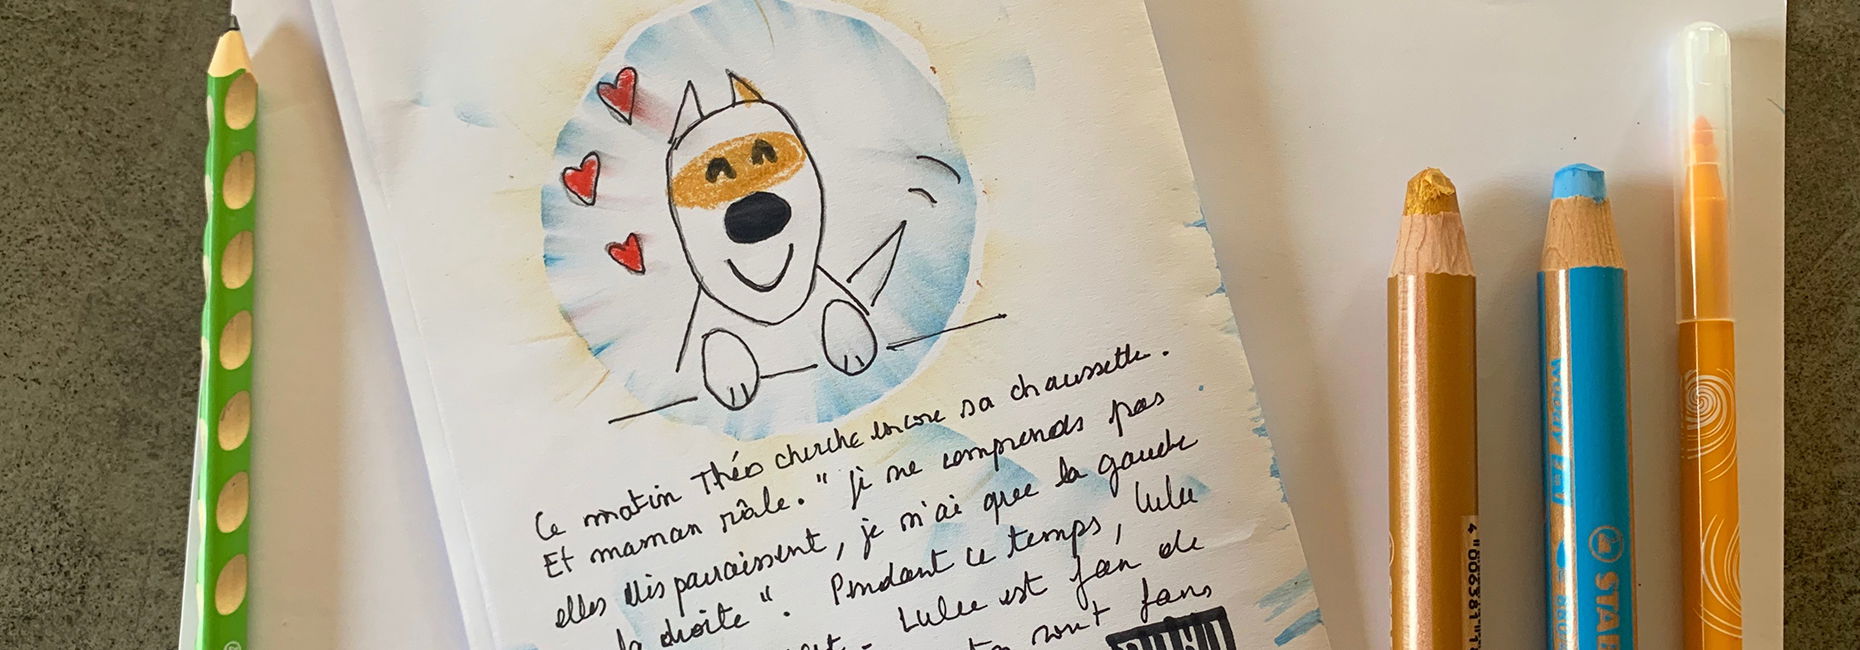 Ce matin Théo cherche encore sa chaussette.
Et maman râle. " Je ne comprends pas
elles disparaissent, je n'ai que la gauche
la droite ". Pendant ce temps, Lulu
Lulu est fan de
sont fans
woody 3 in 1
STAB
4 006381 1